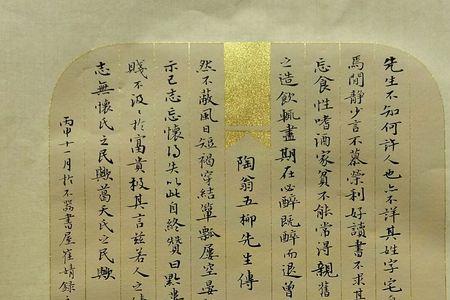 先生不知何許人也亦不詳其姓字宅
焉閒靜少言不慕榮利好讀書不求甚
忘食性嗜酒家貧不能常得親舊
之造飲輒盡期在必醉既醉而退曾
陶翁五柳先生傳
然不蔽風日短褐穿結簞瓢屢空晏
示己志忘懷得失以此自終贊曰黔婁
賤不汲於富貴極其言茲若人之儔
志無懷氏之民歟葛天氏之民歟
丙申十一月於不器書屋崔婧錄